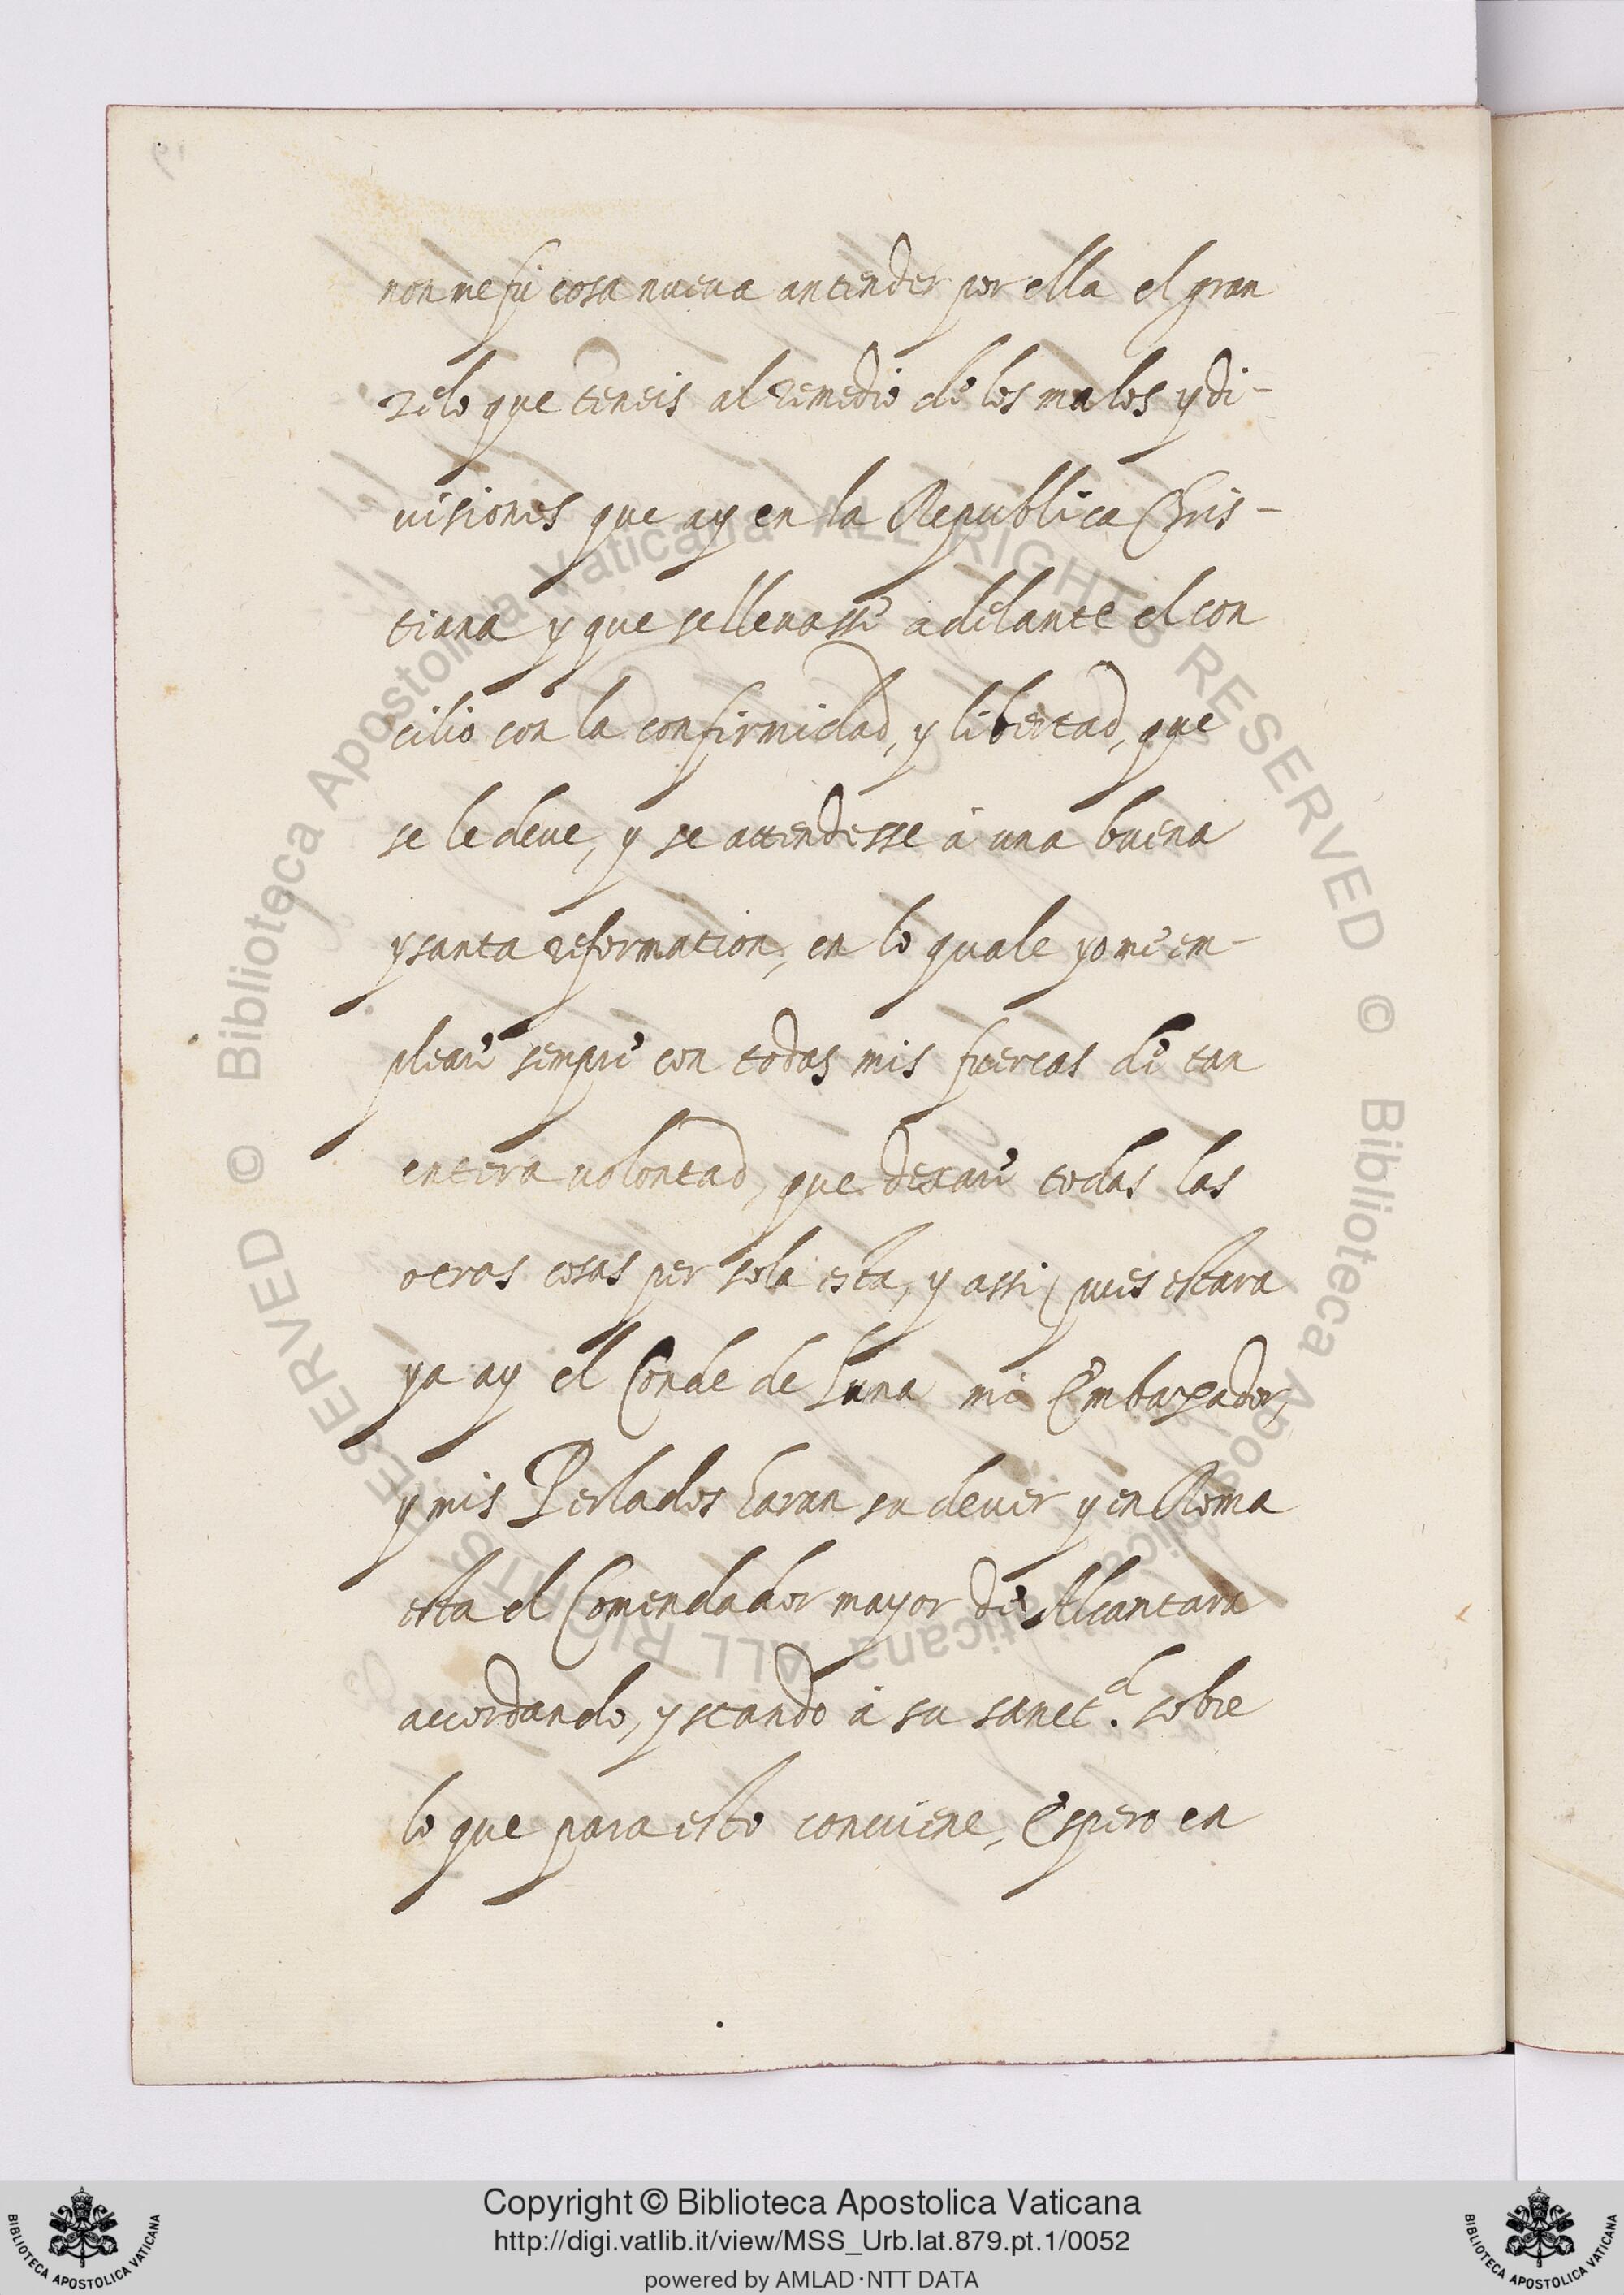 non me fu cosa nueua antender por ella el gran
zelo que teneis al remedio de los males y di-
uisiones que ay en la Republica Chris-
tiana y que se lleuasse adelante el con
cilio con la confirmidad, y libertad, que
se le deue, y se attendesse à una buena
y santa reformation, en lo quale yo me em-
pleare sempre con todas mis fuercas de tan
entera uolontad, que dexare todas las
otras cosas per sola esta, y assi pues estara
ya ay el Conde de Luna mi Embaxador,
y mis Perlados haran su deuer y en Roma
esta el Comendador mayor de Alcantara
accordando, y stando à su sanct.d sobre
lo que para esto conuiene, Espero en
© Biblioteca Apostolica Vaticana ALL RIGHTS RESERVED
© Biblioteca Apostolica Vaticana ALL RIGHTS RESERVED
BIBLIOTECA APOSTOLICA VATICANA
Copyright © Biblioteca Apostolica Vaticana
http://digi.vatlib.it/view/MSS_Urb.lat.879.pt.1/0052
powered by AMLAD·NTT DATA
BIBLIOTECA APOSTOLICA VATICANA